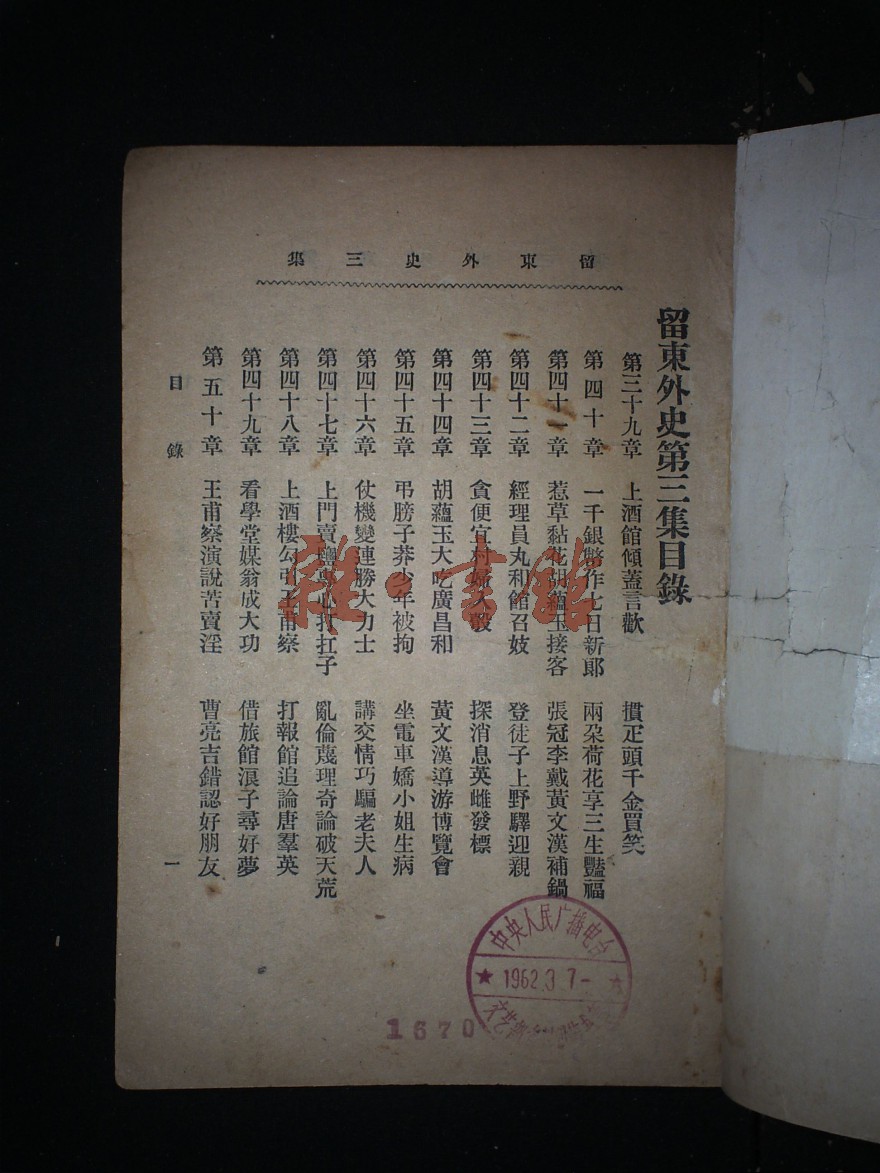 集三史外東留
留東外史第三集目錄
第三十九章 上酒館傾蓋言歡 摜疋頭千金買笑
第四十章 一千銀幣作七日新郎 兩朶荷花享三生豔福
第四十一章 惹草黏花胡蘊玉接客 張冠李戴黃文漢補鍋
第四十二章 經理員丸和館召妓 登徒子上野驛迎親
第四十三章 貪便宜村婦入彀 探消息英雌發標
第四十四章 胡蘊玉大吃廣昌和 黃文漢導游博覽會
第四十五章 弔膀子莽少年被拘 坐電車嬌小姐生病
第四十六章 仗機變連勝大力士 講交情巧騙老夫人
第四十七章 上門賣鹽專心打扛子 亂倫蔑理奇論破天荒
第四十八章 上酒樓勾引王甫察 打報館追論唐羣英
第四十九章 看學堂媒翁成大功 借旅館浪子尋好夢
第五十章 王甫察演說苦賣淫 曹亮吉錯認好朋友
目錄 一
中央人民广播电台
★ 1962.3 7- ★
1670
雜·書館